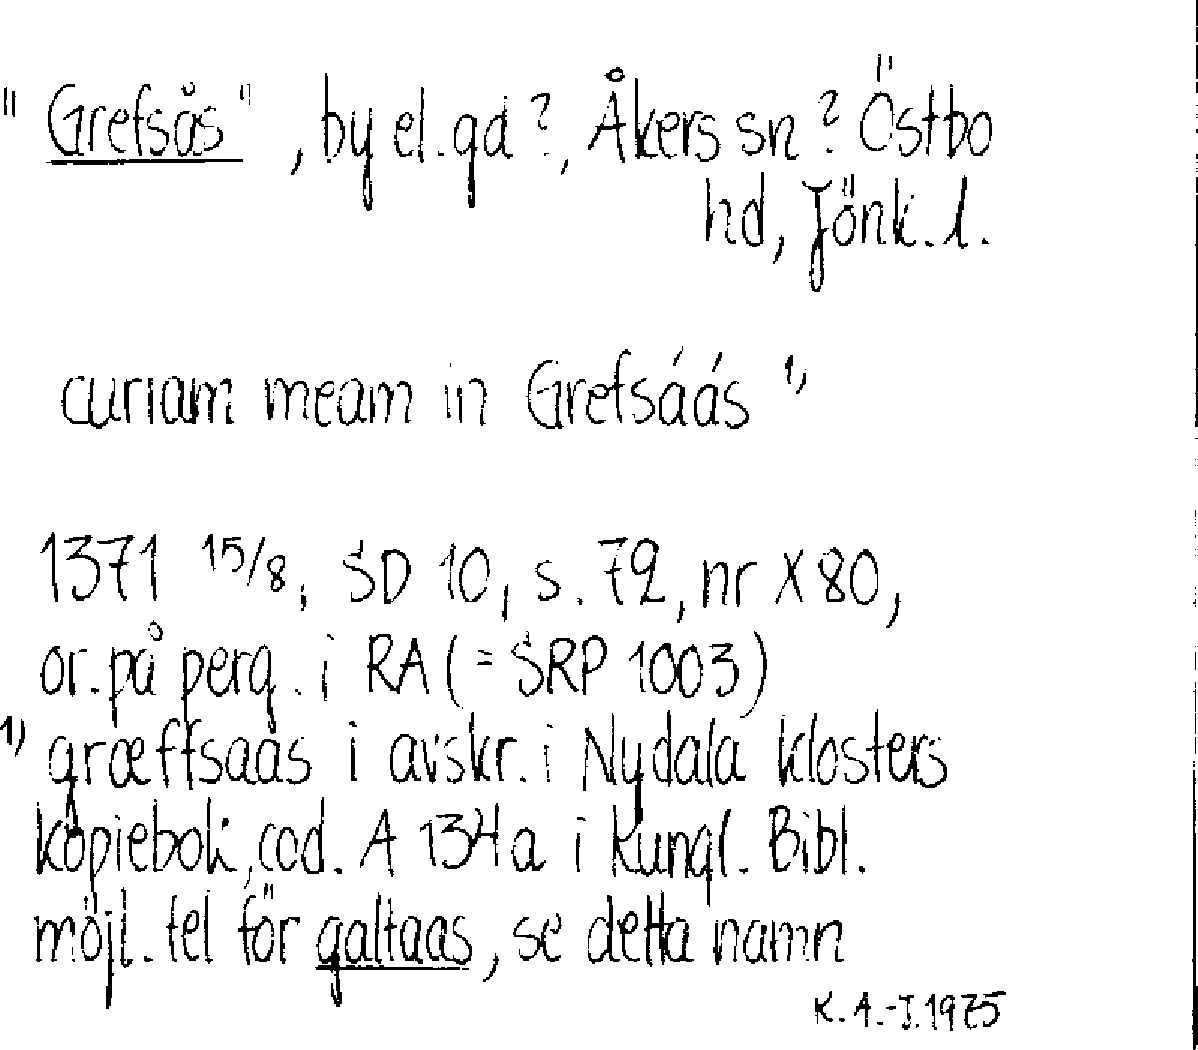 "Grefsås", by el. gd?, Åkers sn? Östbo
hd, Jönk. l.
curiam meam in Grefsáás 1)
1371 15/8, SD 10, s. 72, nr X 80,
or. på perg. i RA (= SRP 1003)
1) græffsaas i avskr. i Nydala klosters
kopiebok, cod. A 134a i Kungl. Bibl.
möjl. fel för galtaas, se detta namn
K. A.-J. 1975